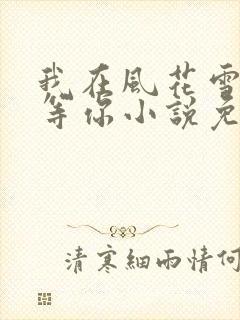 我在風花雪
等你小說免
清寒細雨情何